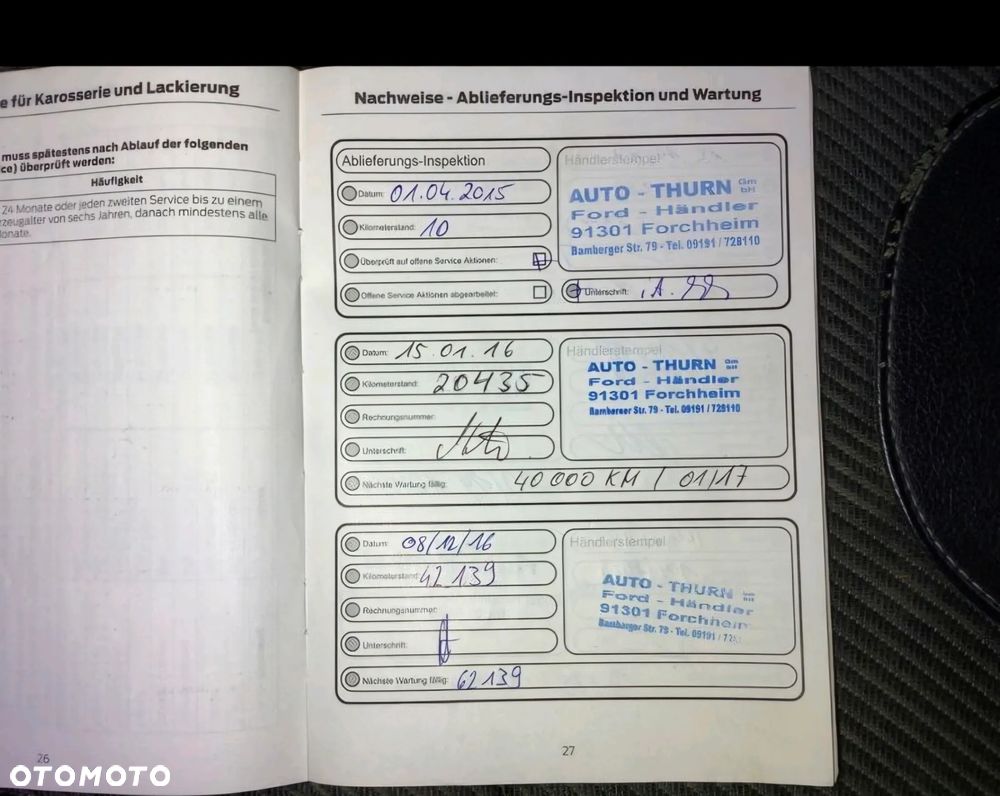 e für Karosserie und Lackierung
muss spätestens nach Ablauf der folgenden
ce) überprüft werden:
Häufigkeit
24 Monate oder jeden zweiten Service bis zu einem
rzeugalter von sechs Jahren, danach mindestens alle
onate.
26
Nachweise - Ablieferungs-Inspektion und Wartung
Ablieferungs-Inspektion
Datum: 01.04.2015
Kilometerstand: 10
Überprüft auf offene Service Aktionen:
Offene Service Aktionen abgearbeitet:
Händlerstempel
AUTO - THURN GmbH
Ford - Händler
91301 Forchheim
Bamberger Str. 79 - Tel. 09191 / 728110
Unterschrift: i.A.
Datum: 15.01.16
Kilometerstand: 20435
Rechnungsnummer:
Unterschrift:
Nächste Wartung fällig: 40 000 KM / 01/17
Händlerstempel
AUTO - THURN GmbH
Ford - Händler
91301 Forchheim
Bamberger Str. 79 - Tel. 09191 / 728110
Datum: 08/12/16
Kilometerstand: 42 139
Rechnungsnummer:
Unterschrift:
Nächste Wartung fällig: 62 139
Händlerstempel
AUTO - THURN GmbH
Ford - Händler
91301 Forchheim
Bamberger Str. 79 - Tel. 09191 / 728
27
OTOMOTO